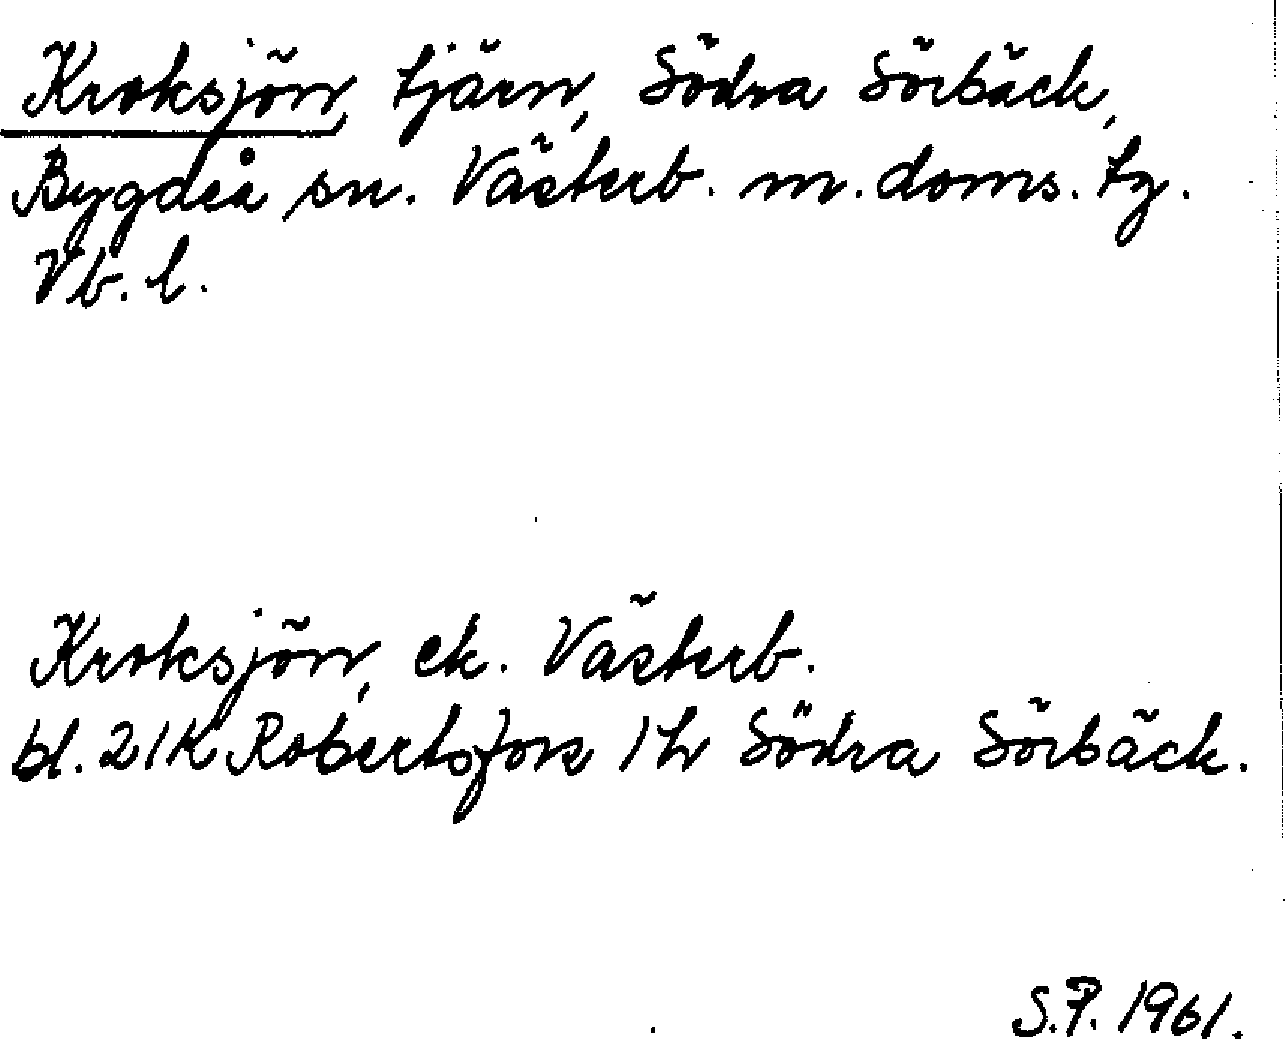 Kroksjön, tjärn, Södra Sörbäck,
Bygdeå sn. Västerb. m. doms. tg.
Vb. l.
Kroksjön, ek. Västerb.
bl. 21K Robertsfors 1h Södra Sörbäck.
S.P. 1961.